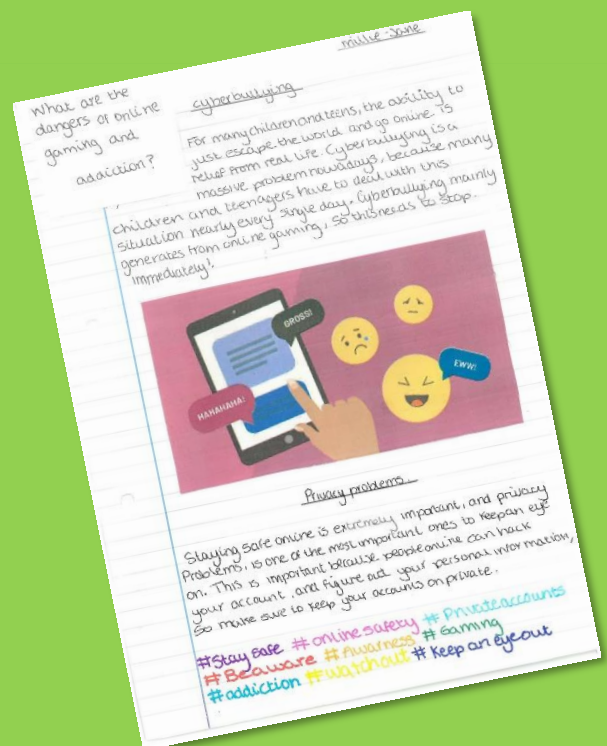 millie-Jane
What are the
dangers of online
gaming and
addiction?
cyberbullying
For many children and teens, the ability to
just escape the world and go online is
relief from real life. Cyberbullying is a
massive problem nowadays, because many
children and teenagers have to deal with this
situation nearly every single day. Cyberbullying mainly
generates from online gaming, so this needs to stop
immediately!
GROSS!
EWW!
HAHAHAHA!
Privacy problems
Staying safe online is extremely important, and privacy
Problems, is one of the most important ones to keep an eye
on. This is important because people online can hack
your account, and figure out your personal information,
so make sure to keep your accounts on private.
#Stay safe #online safety #Private accounts
#Be aware #Awarness #Gaming
#addiction #watch out #keep an eye out